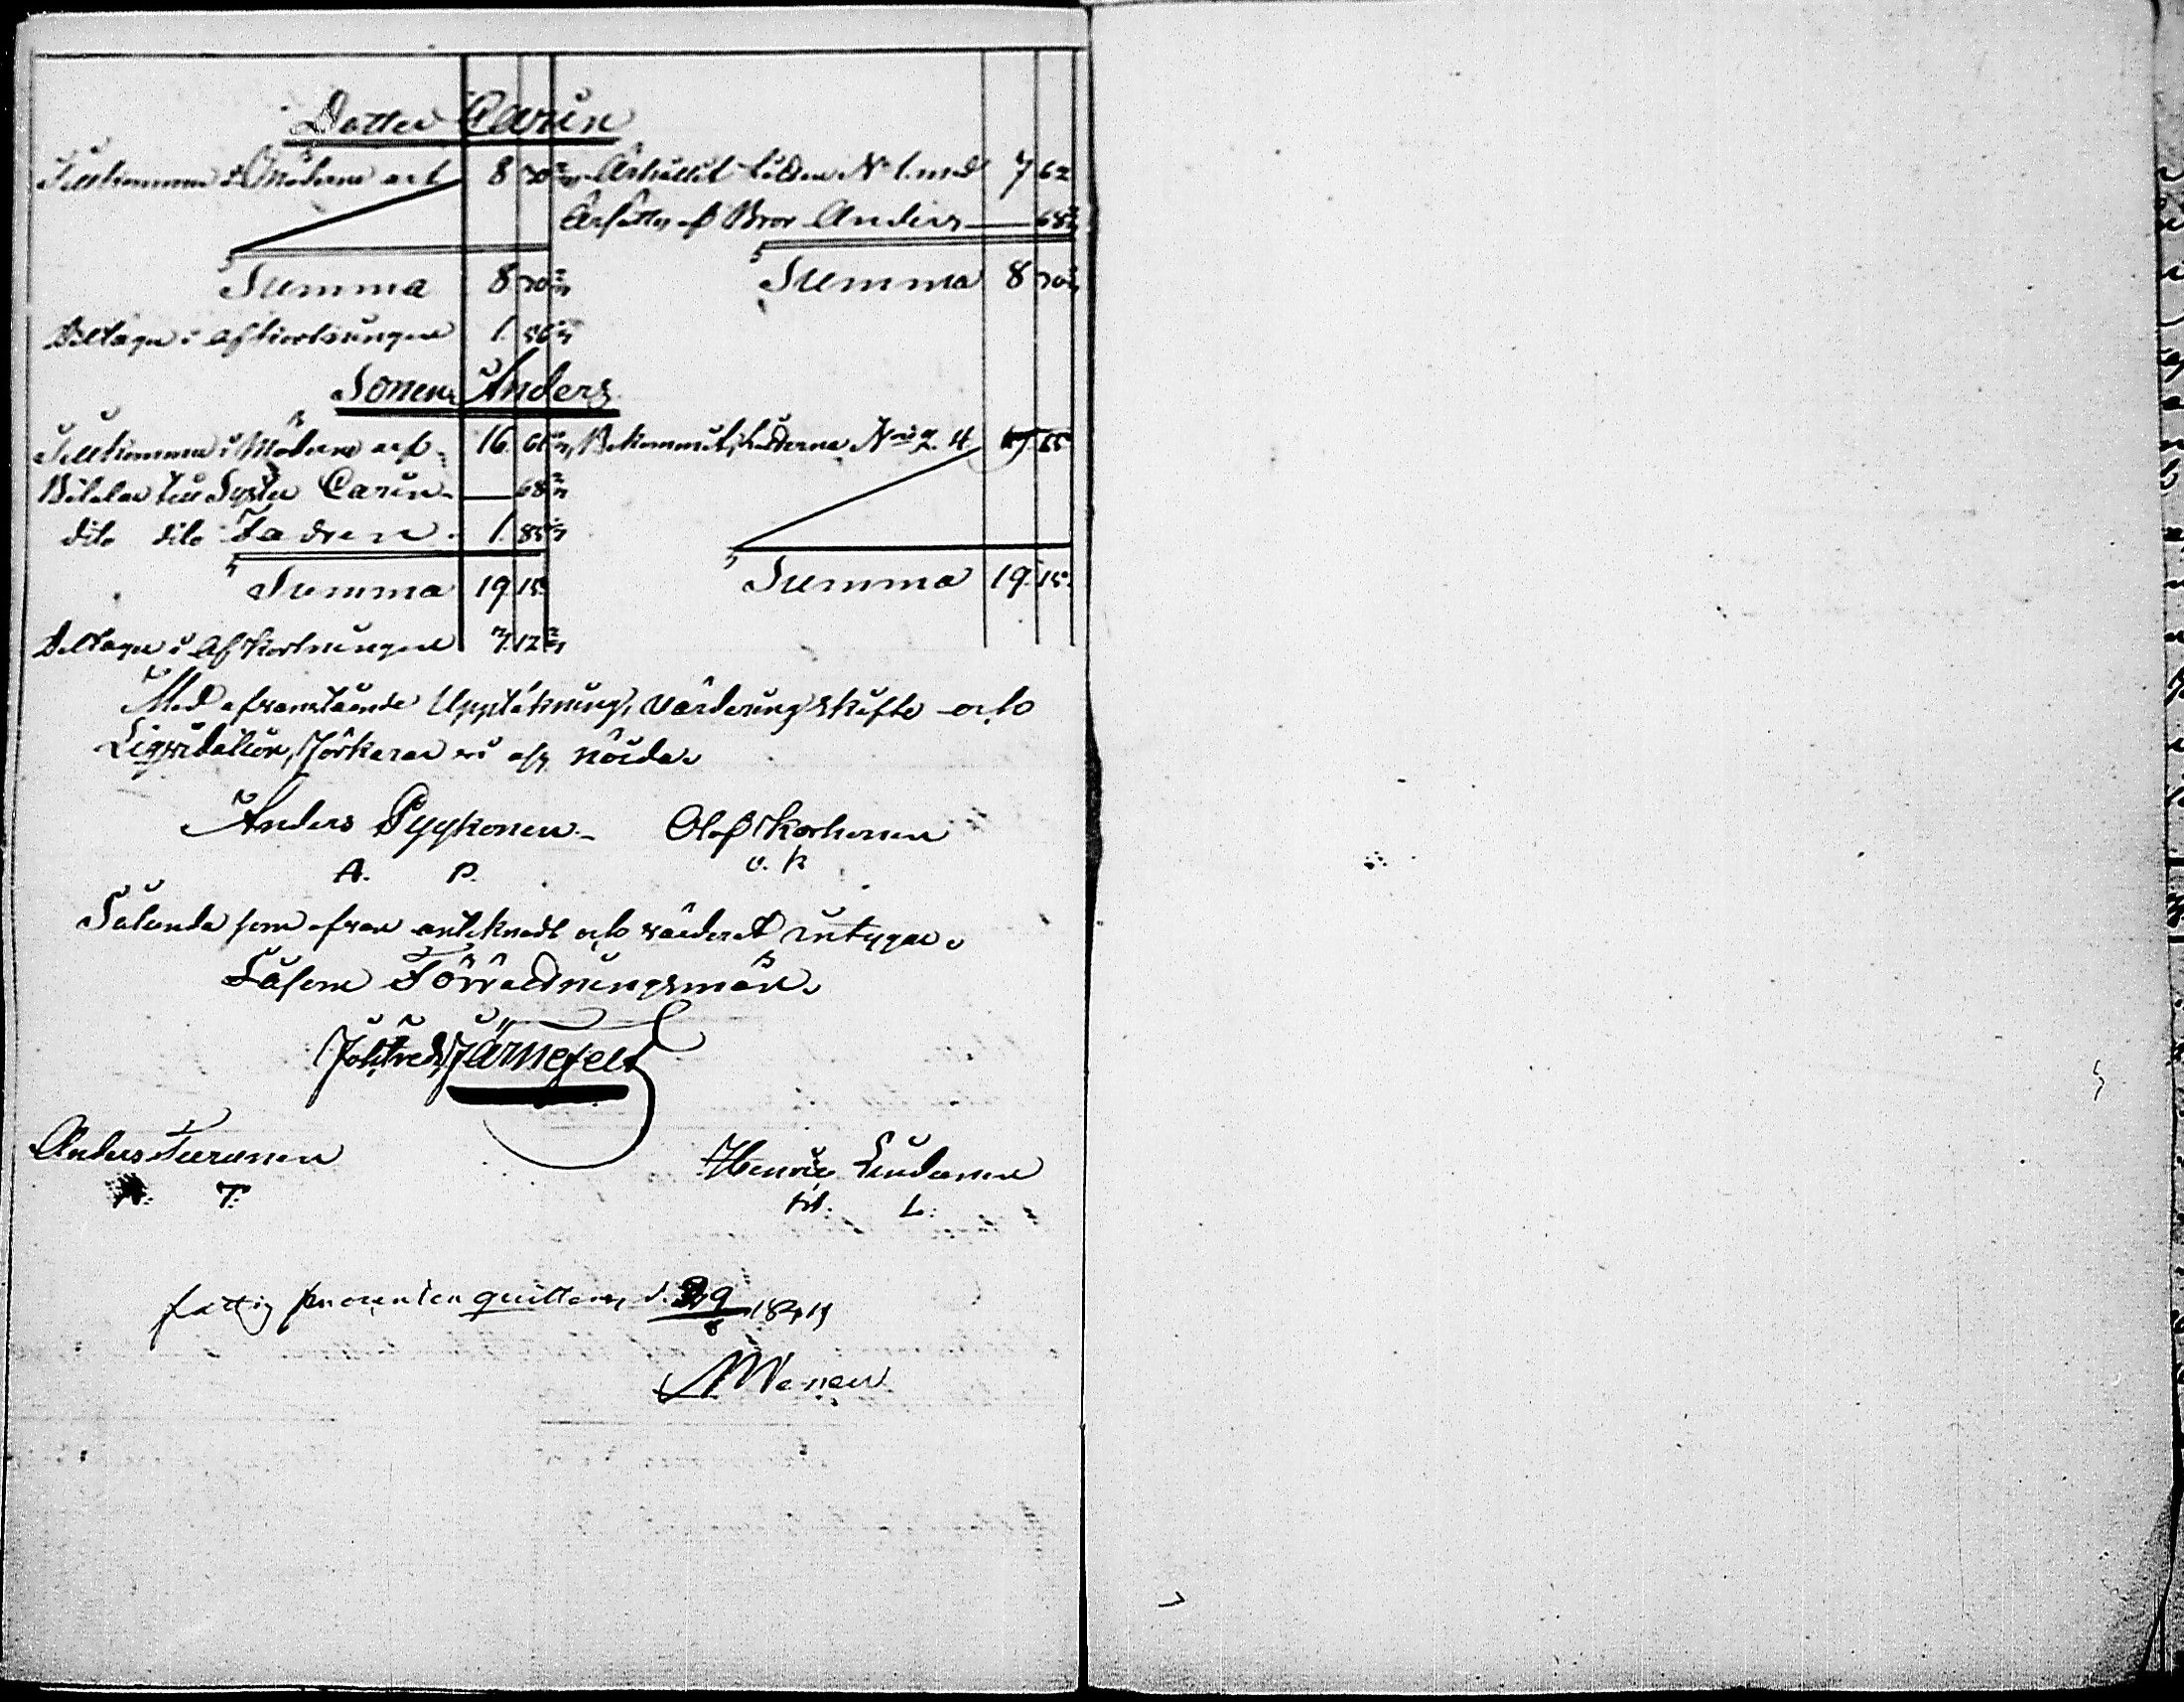 Dotter Carin
Tillkommer i Möderne arf 8 30 2/7 Erhållit Lådan N 1. med 7 62
Ersättes af Bror Anders — 68 2/7
Summa 8 30 2/7 Summa 8 30 2/7
Deltager i Afkortningen 1. 56 1/7
Sonen Anders
Tillkommer i Möderne arf 16. 61 Bekommit, Lådorne N 2. 4 19. 15
Betalar till Syster Carin — 68 2/7
dito dito Fadren 1. 85
Summa 19. 15. Summa 19. 15.
Deltager i Afkortningen 3. 12 2/7
Med ofvanstående Uppteckning, Värdering skifte och
Liqvidation, förklarar vi oss nöjda.
Anders Pyykönen Olof Korhonen
A. P. O. K
Sålunda som ofvan antecknadt och värderat intygar.
Såsom Förrättningsmän.
Joh: Fred: Järnefelt
Anders Turunen Henric Lindanen
A. T. H. L.
fattig procenten quitteras d. 29/8 1841